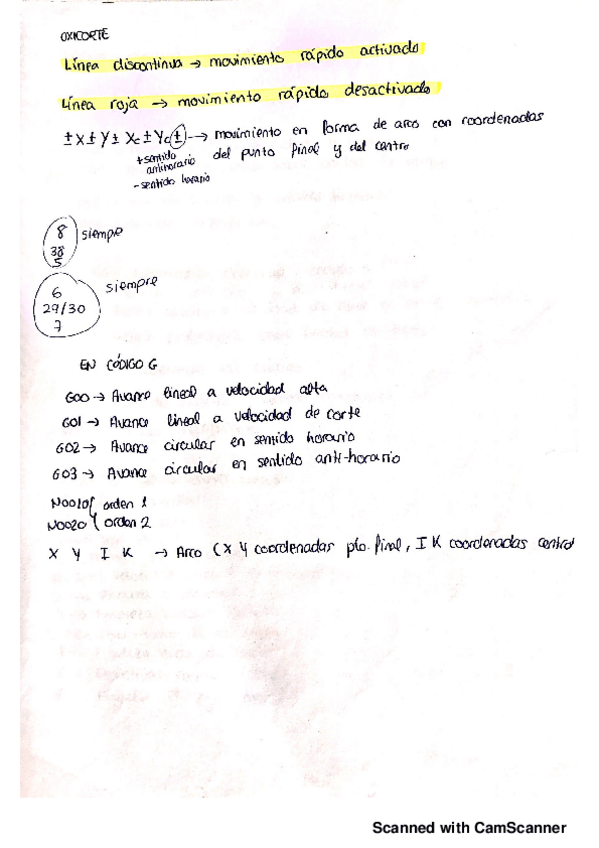 OXICORTE
Línea discontinua → movimiento rápido activado
Línea roja → movimiento rápido desactivado
± X ± Y ± Xc ± Yc ± → movimiento en forma de arco con coordenadas
+ sentido antihorario
- sentido horario
del punto final y del centro
8
38
5
siempre
6
29/30
7
siempre
EN CÓDIGO G
G00 → Avance lineal a velocidad alta
G01 → Avance lineal a velocidad de corte
G02 → Avance circular en sentido horario
G03 → Avance circular en sentido anti-horario
N0010 orden 1
N0020 orden 2
X Y I K → Arco (X Y coordenadas pto. final, I K coordenadas centro)
Scanned with CamScanner